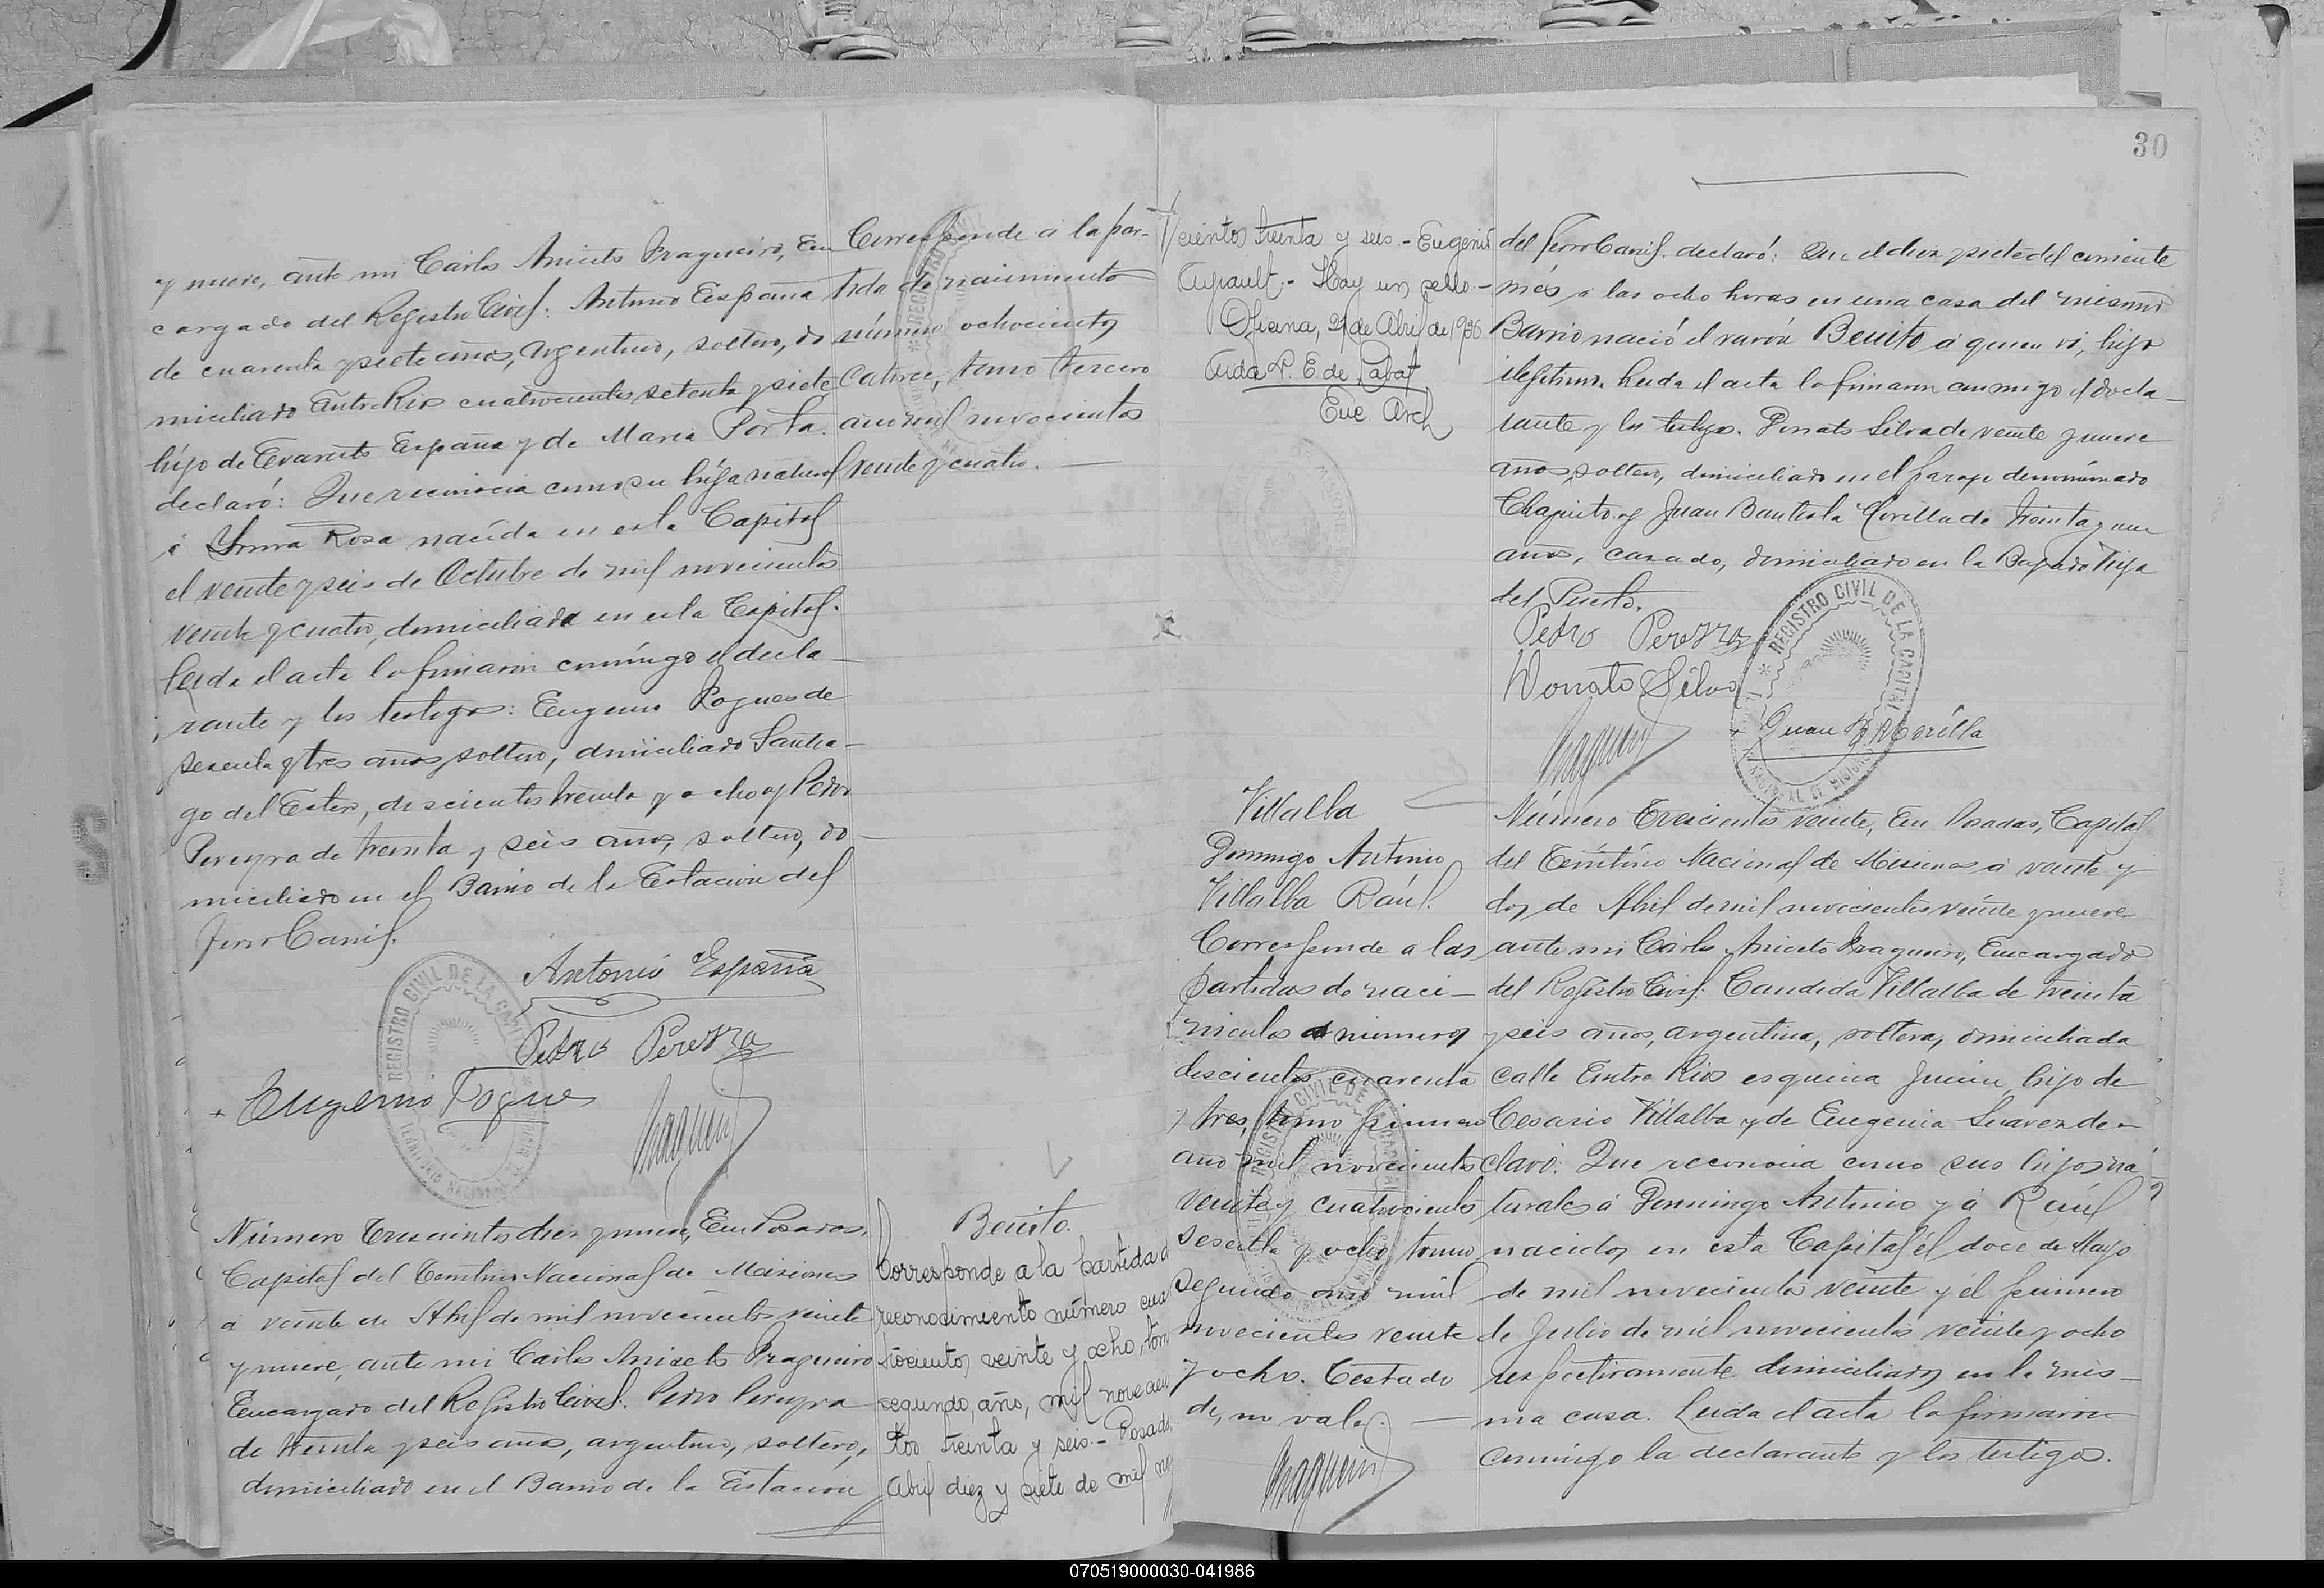 y nueve, ante mi Carlos Aniceto Fragueiro, En
cargado del Registro Civil: Antonio España
de cuarenta y siete años, argentino, soltero, do
miciliado Entre Rios cuatrocientos setenta y siete
hijo de Evaristo España y de Maria Porta.
declaró: Que reconocia como su hija natural
á Rosa nacida en esta Capital
el veinte y seis de Octubre de mil novecientos
veinte y cuatro, domiciliada en esta Capital.
Leida el acta la firmaron conmigo el decla-
rante y los testigos: Eugenio Pogues de
sesenta y tres años, soltero, domiciliado Santia-
go del Estero, doscientos treinta y ocho y Pedro
Pereyra de treinta y seis años, soltero, do-
miciliado en el Barrio de la Estacion del
Ferro Carril.
Antonio España
Pedro Pereyra
Eugenio Pogues
Corresponde á la par-
tida de nacimiento
número ochocientos
catorce, tomo tercero
año mil novecientos
veinte y cuatro.
Número Trescientos diez y nueve, En Posadas,
Capital del Territorio Nacional de Misiones
á veinte de Abril de mil novecientos veinte
y nueve, ante mi Carlos Aniceto Fragueiro
Encargado del Registro Civil: Pedro Pereyra
de treinta y seis años, argentino, soltero,
domiciliado en el Barrio de la Estacion
Benito.
Corresponde a la partida d
reconocimiento número cua
trocientos veinte y ocho, tom
segundo, año, mil novecien
tos treinta y seis.- Posadas
Abril diez y siete de mil no
30
vecientos treinta y seis.- Eugenio
Aupault.- Hay un sello.-
Oficina, 21 de Abril de 1936
Enc Arch
del Ferro Carril. declaró: Que el diez y siete del corriente
més á las ocho horas en una casa del mismo
Barrio nació el varón Benito á quien vi, hijo
ilegitimo. Leida el acta la firmaron conmigo el decla-
rante y los testigos. Donato Silva de veinte y nueve
años, soltero, domiciliado en el paraje denominado
Chaquito y Juan Bautista Morilla de treinta y un
años, casado, domiciliado en la Bajada Vieja
del Puerto.
Pedro Pereyra
Donato Silva
Juan B Morilla
REGISTRO CIVIL DE LA CAPITAL
Villalba
Domingo Antonio
Villalba Raúl.
Corresponde a las
partidas de naci-
mientos números
doscientos cuarenta
y tres, tomo primero
año mil novecientos
veinte y cuatrocientos
sesenta y ocho tomo
segundo año mil
novecientos veinte
y ocho. Testado
de, no vale.
Número Trescientos veinte, En Posadas, Capital
del Territorio Nacional de Misiones á veinte y
dos de Abril de mil novecientos veinte y nueve
ante mi Carlos Aniceto Fragueiro, Encargado
del Registro Civil: Candida Villalba de treinta
y seis años, argentina, soltera, domiciliada
calle Entre Rios esquina Junin hija de
Cesario Villalba y de Eugenia Suarez de-
claró: Que reconocia como sus hijos na-
turales á Domingo Antonio y á Raúl
nacidos en esta Capital el doce de Mayo
de mil novecientos veinte y el primero
de Julio de mil novecientos veinte y ocho
respectivamente domiciliados en la mis-
ma casa. Leida el acta la firmaron
conmigo la declarante y los testigos.
070519000030-041986